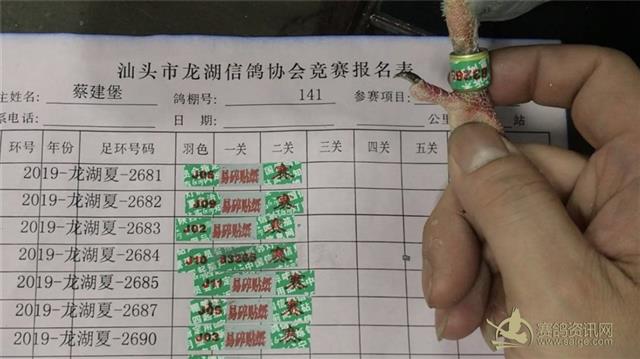 汕头市龙湖信鸽协会竞赛报名表
主姓名: 蔡建堡 鸽棚号: 141 参赛项目:
系电话: 日 期: 公里 站
环号 年份 足环号码 羽色 一关 二关 三关 四关 五关
2019-龙湖夏-2681 J06 易碎贴纸 赛
2019-龙湖夏-2682 J09 易碎贴纸 赛
2019-龙湖夏-2683 J02 易碎贴纸 赛
2019-龙湖夏-2684 J10 83265 赛
2019-龙湖夏-2685 J11 易碎贴纸 赛
2019-龙湖夏-2687 J05 易碎贴纸 赛
2019-龙湖夏-2690 J03 易碎贴纸 赛
赛鸽资讯网
www.saige.com